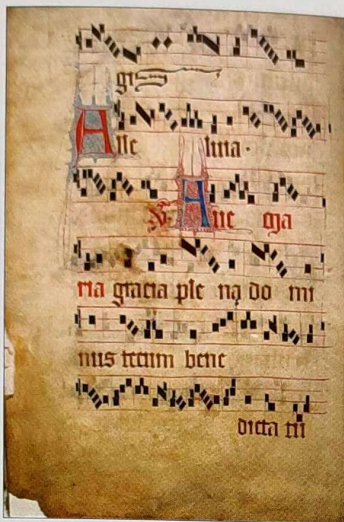 gis
Alle luia.
℣. Aue ma
ria gracia ple na do mi
nus tecum bene
dicta tu